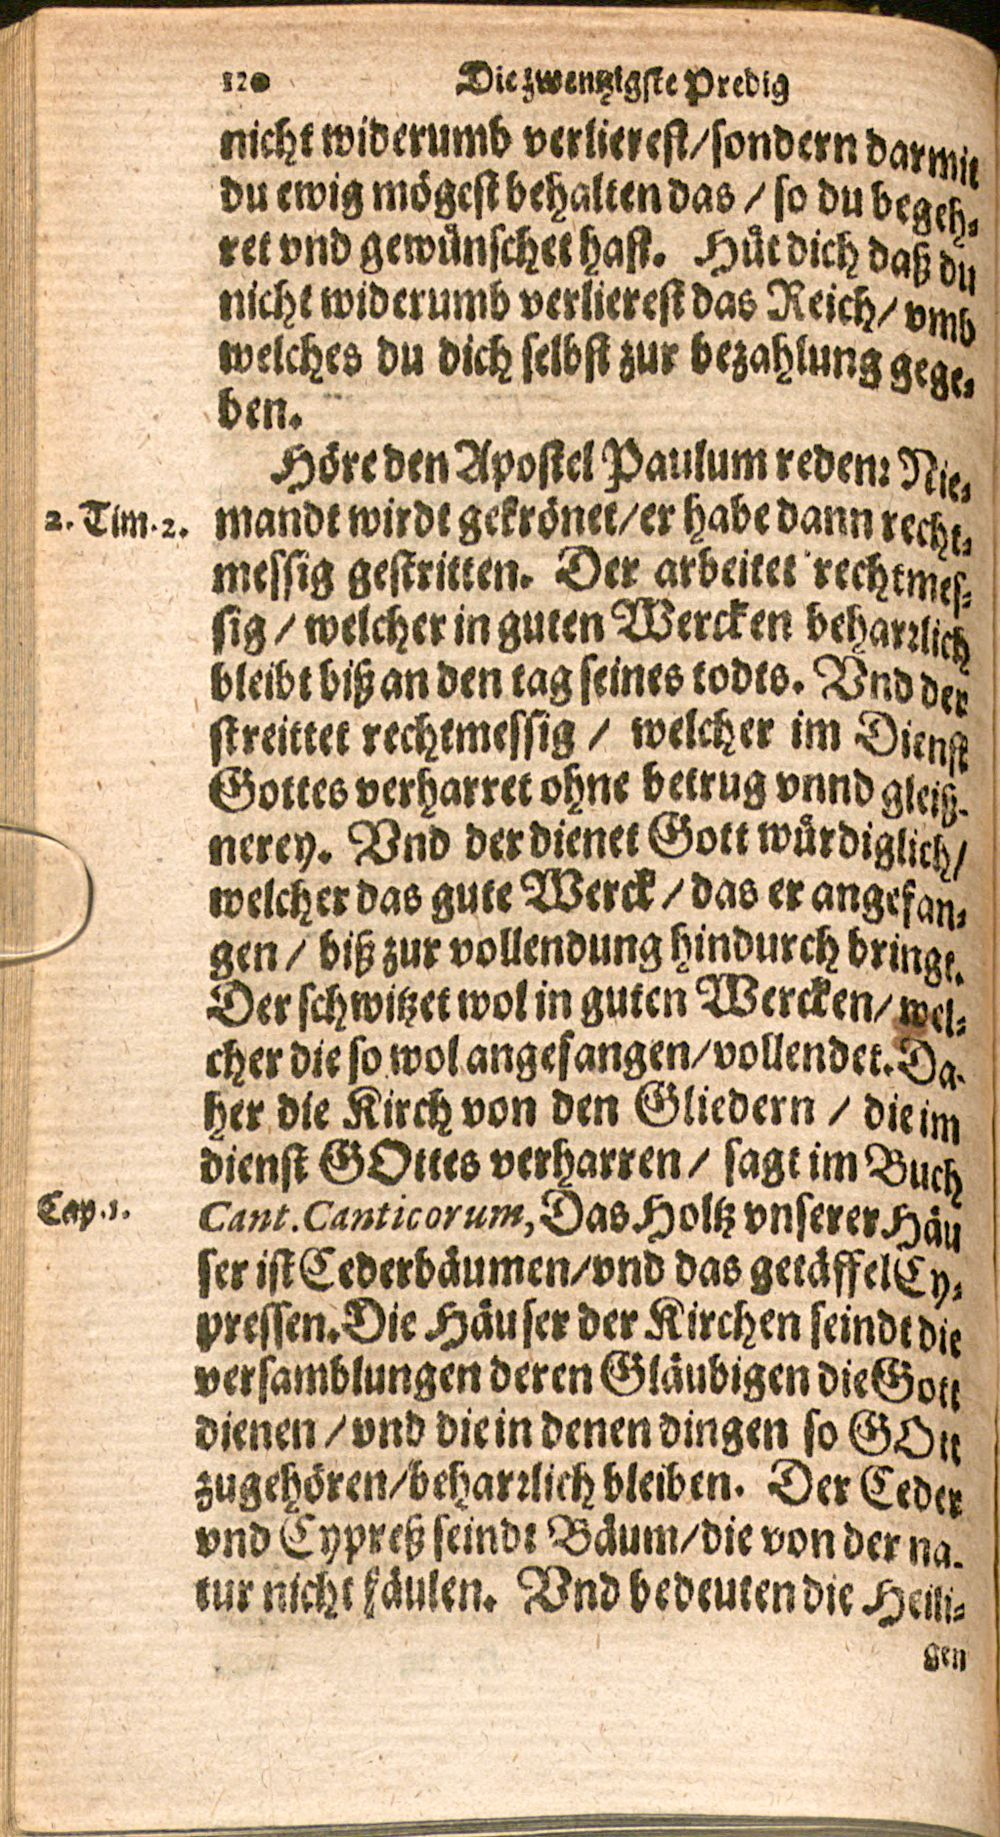 120 Die zwentzigste Predig
nicht widerumb verlierest/sondern darmit
du ewig mögest behalten das / so du begeh-
ret vnd gewünschet hast. Hüt dich daß du
nicht widerumb verlierest das Reich/ vmb
welches du dich selbst zur bezahlung gege-
ben.
Höre den Apostel Paulum reden: Nie-
2. Tim. 2. mandt wirdt gekrönet/er habe dann recht-
messig gestritten. Der arbeitet rechtmes-
sig / welcher in guten Wercken beharrlich
bleibt biß an den tag seines todts. Vnd der
streittet rechtmessig / welcher im Dienst
Gottes verharret ohne betrug vnnd gleiß-
nerey. Vnd der dienet Gott würdiglich/
welcher das gute Werck / das er angefan-
gen / biß zur vollendung hindurch bringt.
Der schwitzet wol in guten Wercken/ wel-
cher die so wol angefangen/vollendet. Da-
her die Kirch von den Gliedern / die im
dienst GOttes verharren / sagt im Buch
Cap. 1. Cant. Canticorum, Das Holtz vnserer Häu
ser ist Cederbäumen/vnd das getäffel Cy-
pressen. Die Häuser der Kirchen seindt die
versamblungen deren Gläubigen die Gott
dienen / vnd die in denen dingen so GOtt
zugehören/beharrlich bleiben. Der Ceder
vnd Cypreß seindt Bäum/die von der na-
tur nicht fäulen. Vnd bedeuten die Heili-
gen